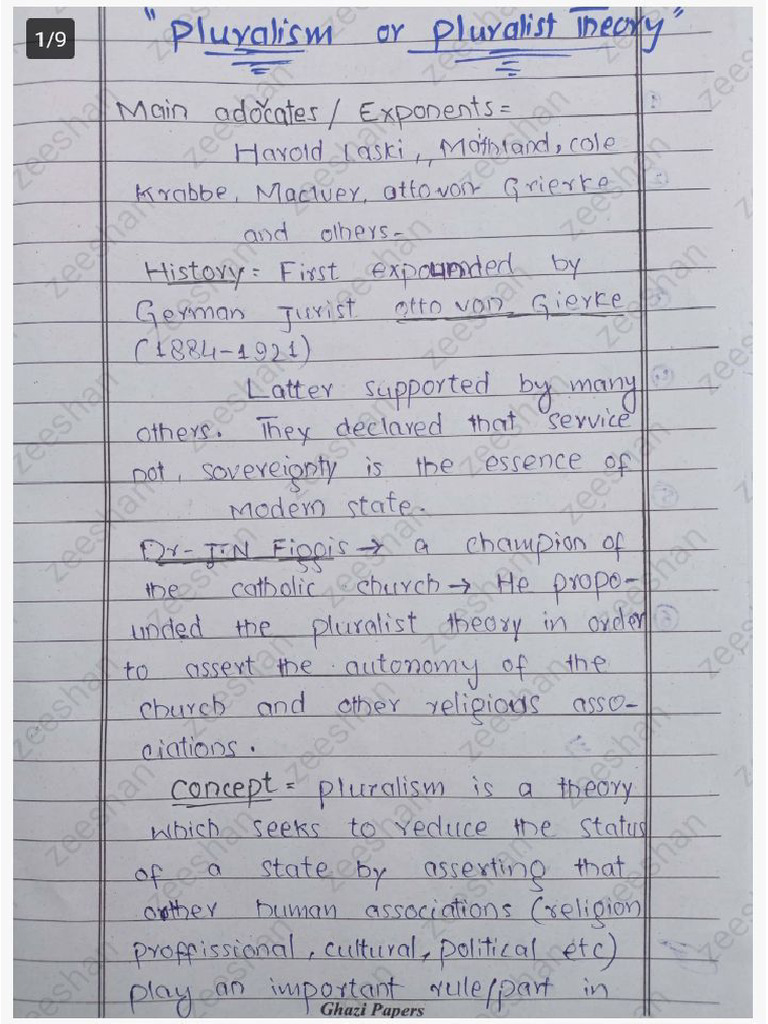 1/9
"Pluralism or Pluralist Theory"
Main adocates / Exponents =
Harold Laski, Maithland, cole
Krabbe, MacIver, otto von Grierke
and others-
History = First expounded by
German Jurist otto von Gierke
(1884-1921)
Latter supported by many
others. They declared that service
not, sovereignty is the essence of
Modern state.
Dr- J.N Figgis → a champion of
the catholic church → He propo-
unded the pluralist theory in order
to assert the autonomy of the
church and other religious asso-
ciations.
Concept = pluralism is a theory
which seeks to reduce the status
of a state by asserting that
other human associations (religion
proffissional, cultural, political etc)
play an important rule/part in
Ghazi Papers
zeeshan